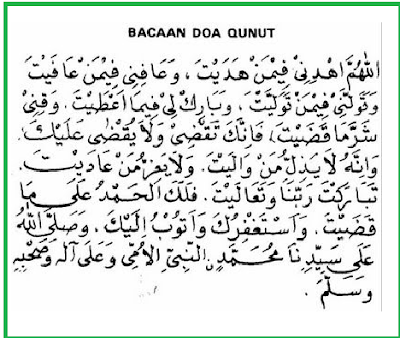 BACAAN DOA QUNUT
اَللّٰهُمَّ اهْدِنِيْ فِيْمَنْ هَدَيْتَ ، وَعَافِنِيْ فِيْمَنْ عَافَيْتَ
وَتَوَلَّنِيْ فِيْمَنْ تَوَلَّيْتَ ، وَبَارِكْ لِيْ فِيْمَا اَعْطَيْتَ . وَقِنِيْ
شَرَّمَا قَضَيْتَ ، فَاِنَّكَ تَقْضِيْ وَلَا يُقْضٰى عَلَيْكَ .
وَاِنَّهُ لَا يَذِلُّ مَنْ وَالَيْتَ . وَلَا يَعِزُّ مَنْ عَادَيْتَ .
تَبَارَكْتَ رَبَّنَا وَتَعَالَيْتَ . فَلَكَ الْحَمْدُ عَلٰى مَا
قَضَيْتَ . وَاَسْتَغْفِرُكَ وَاَتُوْبُ اِلَيْكَ . وَصَلَّى اللّٰهُ
عَلٰى سَيِّدِنَا مُحَمَّدٍ النَّبِيِّ الْاُمِّيِّ وَعَلٰى اٰلِهِ وَصَحْبِهِ
وَسَلَّمَ .